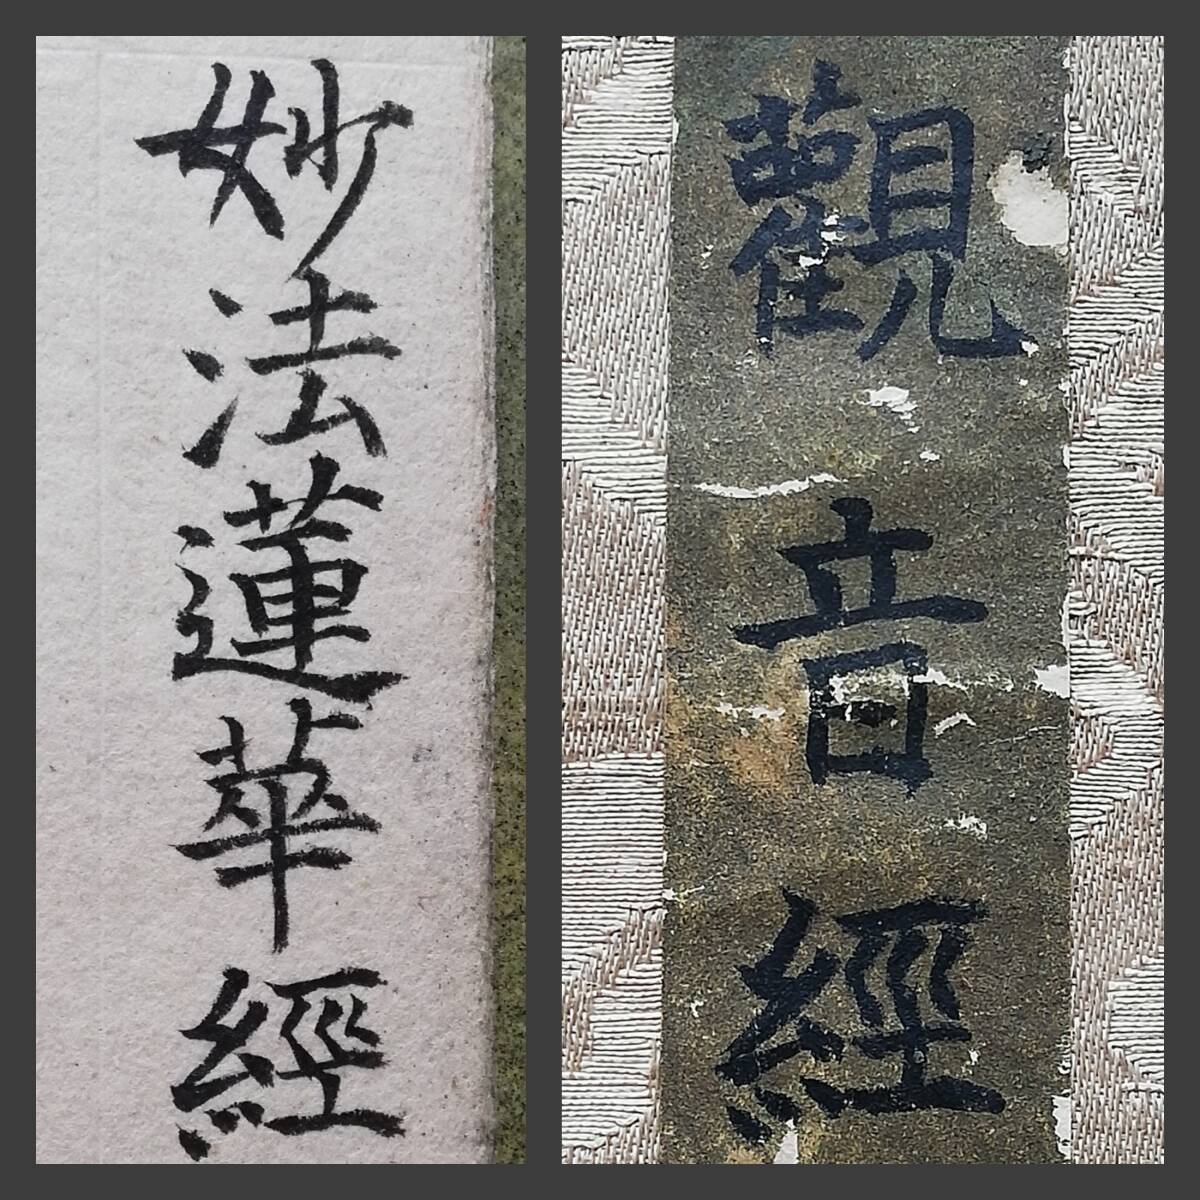 妙法蓮華經
觀音經